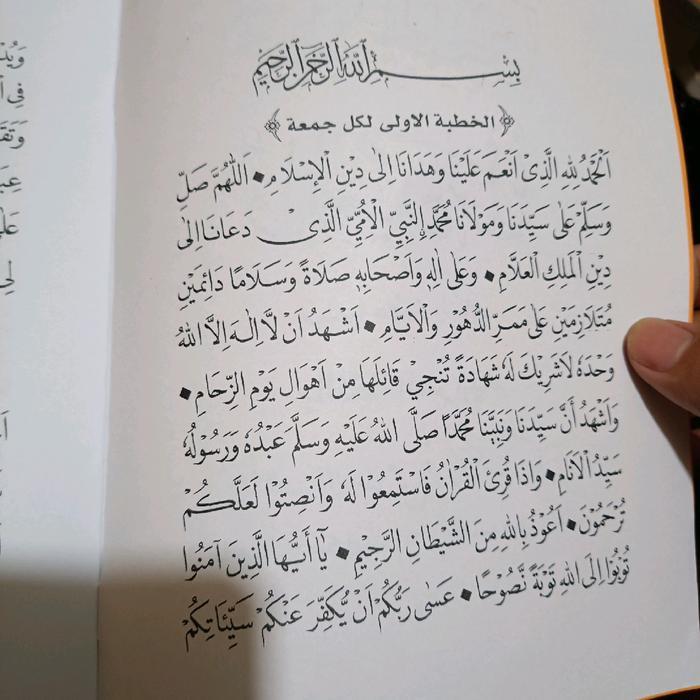 بِسْمِ اللهِ الرَّحْمٰنِ الرَّحِيْمِ
﴿الخطبة الاولى لكل جمعة﴾
اَلْحَمْدُ لِلّٰهِ الَّذِىْ اَنْعَمَ عَلَيْنَا وَهَدَانَا اِلٰى دِيْنِ الْاِسْلَامِ ◆ اَللّٰهُمَّ صَلِّ
وَسَلِّمْ عَلٰى سَيِّدِنَا وَمَوْلَانَا مُحَمَّدِ اِلنَّبِيِّ الْاُمِّيِّ الَّذِىْ دَعَانَا اِلٰى
دِيْنِ الْمَلِكِ الْعَلَّامِ ◆ وَعَلٰى اٰلِهٖ وَاَصْحَابِهٖ صَلَاةً وَسَلَامًا دَائِمَيْنِ
مُتَلَازِمَيْنِ عَلٰى مَمَرِّ الدُّهُوْرِ وَالْاَيَّامِ ◆ اَشْهَدُ اَنْ لَّا اِلٰهَ اِلَّا اللهُ
وَحْدَهٗ لَاشَرِيْكَ لَهٗ شَهَادَةً تُنْجِيْ قَائِلَهَا مِنْ اَهْوَالِ يَوْمِ الزِّحَامِ ◆
وَاَشْهَدُ اَنَّ سَيِّدَنَا وَنَبِيَّنَا مُحَمَّدًا صَلَّى اللهُ عَلَيْهِ وَسَلَّمَ عَبْدُهٗ وَرَسُوْلُهٗ
سَيِّدُ الْاَنَامِ ◆ وَاِذَا قُرِئَ الْقُرْاٰنُ فَاسْتَمِعُوْا لَهٗ وَاَنْصِتُوْا لَعَلَّكُمْ
تُرْحَمُوْنَ ◆ اَعُوْذُ بِاللهِ مِنَ الشَّيْطَانِ الرَّجِيْمِ ◆ يَا اَيُّهَا الَّذِيْنَ اٰمَنُوْا
تُوْبُوْا اِلَى اللهِ تَوْبَةً نَّصُوْحًا ◆ عَسٰى رَبُّكُمْ اَنْ يُّكَفِّرَ عَنْكُمْ سَيِّئَاتِكُمْ